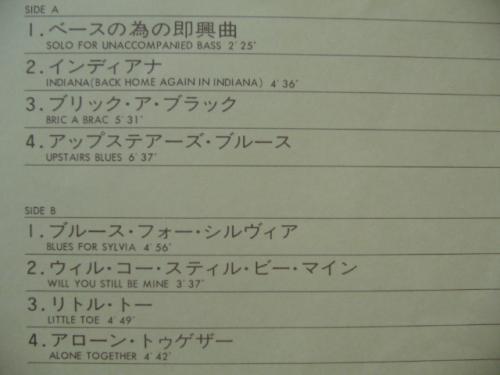 SIDE A
1.ベースの為の即興曲
SOLO FOR UNACCOMPANIED BASS 2'25"
2.インディアナ
INDIANA(BACK HOME AGAIN IN INDIANA) 4'36"
3.ブリック・ア・ブラック
BRIC A BRAC 5'31"
4.アップステアーズ・ブルース
UPSTAIRS BLUES 6'37"
SIDE B
1.ブルース・フォー・シルヴィア
BLUES FOR SYLVIA 4'56"
2.ウィル・コー・スティル・ビー・マイン
WILL YOU STILL BE MINE 3'37"
3.リトル・トー
LITTLE TOE 4'49"
4.アローン・トゥゲザー
ALONE TOGETHER 4'42"